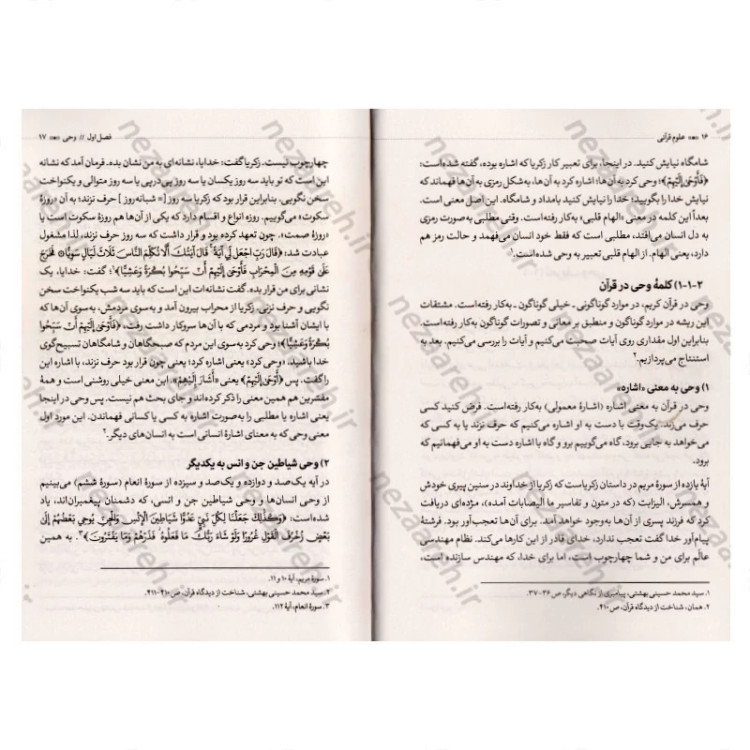 ۱۶ علوم قرآنی
شامگاه نیایش کنید. در اینجا، برای تعبیر کار زکریا که اشاره بوده، گفته شده است:
﴿فَأَوْحَىٰ إِلَيْهِمْ﴾؛ وحی کرد به آن‌ها؛ اشاره کرد به آن‌ها، به‌شکل رمزی به آن‌ها فهماند که
نیایش خدا را بگویید؛ خدا را نیایش کنید بامداد و شامگاه. این اصل معنی است.
بعداً این کلمه در معنی «الهام قلبی» به‌کار رفته‌است. وقتی مطلبی به‌صورت رمزی
به دل انسان می‌افتد، مطلبی است که فقط خود انسان می‌فهمد و حالت رمز هم
دارد، یعنی الهام. از الهام قلبی تعبیر به وحی شده‌است.۱
۱-۱-۲) کلمهٔ وحی در قرآن
وحی در قرآن کریم، در موارد گوناگونی ـ خیلی گوناگون ـ به‌کار رفته‌است. مشتقات
این ریشه در موارد گوناگون و منطبق بر معانی و تصورات گوناگون به‌کار رفته‌است.
بنابراین اول مقداری روی آیات صحبت می‌کنیم و آیات را بررسی می‌کنیم، بعد به
استنتاج می‌پردازیم.۲
۱) وحی به معنی «اشاره»
وحی در قرآن به معنی اشاره (اشارهٔ معمولی) به‌کار رفته‌است. فرض کنید کسی
حرف می‌زند. یک‌وقت با دست به او اشاره می‌کنیم که حرف نزند یا به کسی که
می‌خواهد به جایی برود، گاه می‌گوییم برو و گاه با اشاره دست به او می‌فهمانیم که
برود.
آیهٔ یازده از سورهٔ مریم در داستان زکریاست که زکریا از خداوند در سنین پیری خودش
و همسرش، الیزابت (که در متون و تفاسیر ما الیصابات آمده)، مژده‌ای دریافت
کرد که فرزند پسری از آن‌ها به‌وجود خواهد آمد. برای آن‌ها تعجب‌آور بود. فرشتهٔ
پیام‌آور خدا گفت تعجب ندارد، خدای قادر از این کارها می‌کند. نظام مهندسی
عالم برای من و شما چهارچوب است، اما برای خدا، که مهندس سازنده است،
۱. سید محمد حسینی بهشتی، پیامبری از نگاهی دیگر، ص ۳۶-۳۷.
۲. همان، شناخت از دیدگاه قرآن، ص ۴۱۰.
فصل اول // وحی ۱۷
چهارچوب نیست. زکریا گفت: خدایا، نشانه‌ای به من نشان بده. فرمان آمد که نشانه
این است که تو باید سه روز یکسان یا سه روز پی‌درپی یا سه روز متوالی و یکنواخت
سخن نگویی. بنابراین قرار بود که زکریا سه روز [= شبانه‌روز] حرف نزند؛ به آن «روزهٔ
سکوت» می‌گوییم. روزه انواع و اقسام دارد که یکی از آن‌ها هم روزهٔ سکوت است یا
«روزهٔ صمت». چون تعهد کرده بود و قرار داشت که سه روز حرف نزند، لذا مشغول
عبادت شد؛ ﴿قَالَ رَبِّ اجْعَل لِّي آيَةً قَالَ آيَتُكَ أَلَّا تُكَلِّمَ النَّاسَ ثَلَاثَ لَيَالٍ سَوِيًّا * فَخَرَجَ
عَلَىٰ قَوْمِهِ مِنَ الْمِحْرَابِ فَأَوْحَىٰ إِلَيْهِمْ أَن سَبِّحُوا بُكْرَةً وَعَشِيًّا﴾۱؛ گفت: خدایا، یک
نشانی برای من قرار بده. گفت نشانه‌ات این است که باید سه شب یکنواخت سخن
نگویی و حرف نزنی. زکریا از محراب بیرون آمد و به‌سوی مردمش، به‌سوی آن‌ها که
با ایشان آشنا بود و مردمی که با آن‌ها سروکار داشت رفت، ﴿فَأَوْحَىٰ إِلَيْهِمْ أَن سَبِّحُوا
بُكْرَةً وَعَشِيًّا﴾؛ وحی کرد به‌سوی این مردم که صبحگاهان و شامگاهان تسبیح‌گوی
خدا باشید. «وحی کرد» یعنی اشاره کرد؛ چون قرار بود حرف نزند، با اشاره این
را گفت. پس ﴿أَوْحَىٰ إِلَيْهِمْ﴾ یعنی «أَشَارَ إِلَيْهِمْ». این معنی خیلی روشنی است و همهٔ
مفسّرین هم همین معنی را ذکر کرده‌اند و جای بحث هم نیست. پس وحی در اینجا
یعنی اشاره یا مطلبی را به‌صورت اشاره به کسی یا کسانی فهماندن. این مورد اول
معنی وحی که به معنای اشارهٔ انسانی است به انسان‌های دیگر.۲
۲) وحی شیاطین جن و انس به یکدیگر
در آیه یک‌صد و دوازده و یک‌صد و سیزده از سورهٔ انعام (سورهٔ ششم) می‌بینیم
از وحی انسان‌ها و وحی شیاطین جن و انسی، که دشمنان پیغمبران‌اند، یاد
شده‌است: ﴿وَكَذَٰلِكَ جَعَلْنَا لِكُلِّ نَبِيٍّ عَدُوًّا شَيَاطِينَ الْإِنسِ وَالْجِنِّ يُوحِي بَعْضُهُمْ إِلَىٰ
بَعْضٍ زُخْرُفَ الْقَوْلِ غُرُورًا وَلَوْ شَاءَ رَبُّكَ مَا فَعَلُوهُ فَذَرْهُمْ وَمَا يَفْتَرُونَ﴾۳. به همین
۱. سورهٔ مریم، آیهٔ ۱۰ و ۱۱.
۲. سید محمد حسینی بهشتی، شناخت از دیدگاه قرآن، ص ۴۱۰-۴۱۱.
۳. سورهٔ انعام، آیهٔ ۱۱۲.
nezaareh.ir